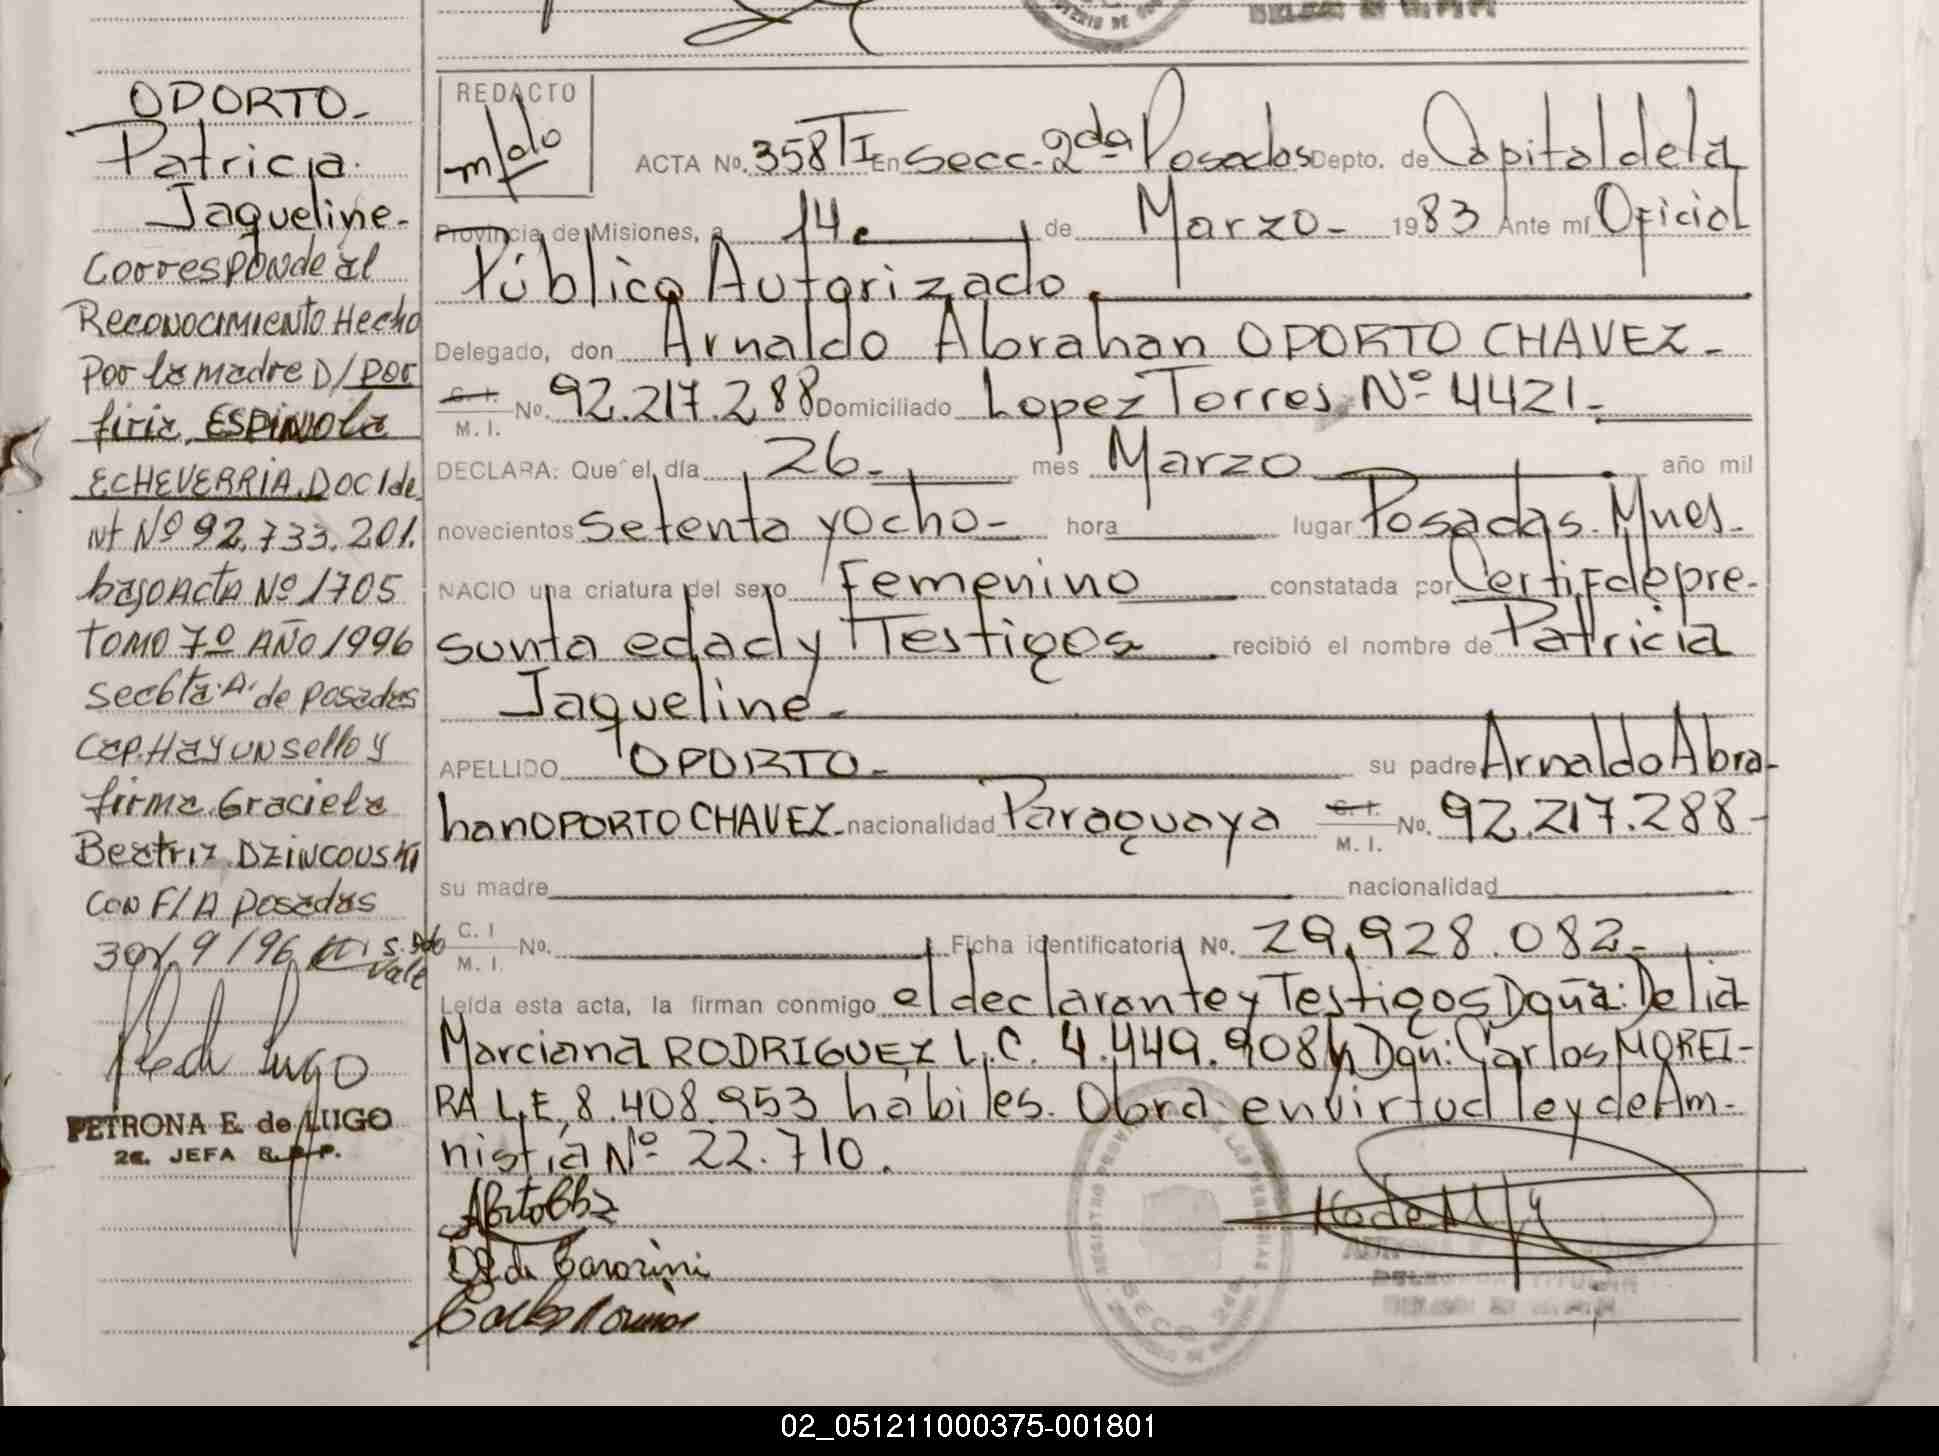 OPORTO-
Patricia
Jaqueline-
Corresponde al
Reconocimiento Hecho
Por la madre D/Por
firia ESPINOla
ECHEVERRIA, DOC Ide
nt Nº 92.733.201.
bajo Acta Nº 1705
TOMO 7º AÑO 1996
Secc 6ta "A" de posadas
Cap. Hay un sello y
firma Graciela
Beatriz DZINCOUSKI
CON F/A Posadas
30/9/96
S. Bdo
Vale
PETRONA E. de LUGO
2a. JEFA R.P.P.
REDACTO
ACTA No. 358 TI En Secc. 2da Posadas Depto. de Capital de la
Provincia de Misiones, a 14. de Marzo- 1983 Ante mí Oficial
Público Autorizado.
Delegado, don Arnaldo Abrahan OPORTO CHAVEZ-
C. I. M. I. No. 92.217.288 Domiciliado Lopez Torres Nº 4421-
DECLARA: Que el día 26- mes Marzo año mil
novecientos setenta y ocho- hora lugar Posadas. Mnes-
NACIO una criatura del sexo Femenino constatada por Certif de pre-
sunta edad y Testigos recibió el nombre de Patricia
Jaqueline-
APELLIDO OPORTO- su padre Arnaldo Abra-
han OPORTO CHAVEZ- nacionalidad Paraguaya C. I. M. I. No. 92.217.288-
su madre nacionalidad
C. I M. I. No. Ficha identificatoria No. 29.928.082-
Leída esta acta, la firman conmigo el declarante y Testigos Doña: Delia
Marciana RODRIGUEZ L.C. 4.449.908 y Don: Carlos MOREI-
RA L.E. 8.408.953 hábiles. Obra en virtud ley de Am-
nistía Nº 22.710.
02_051211000375-001801